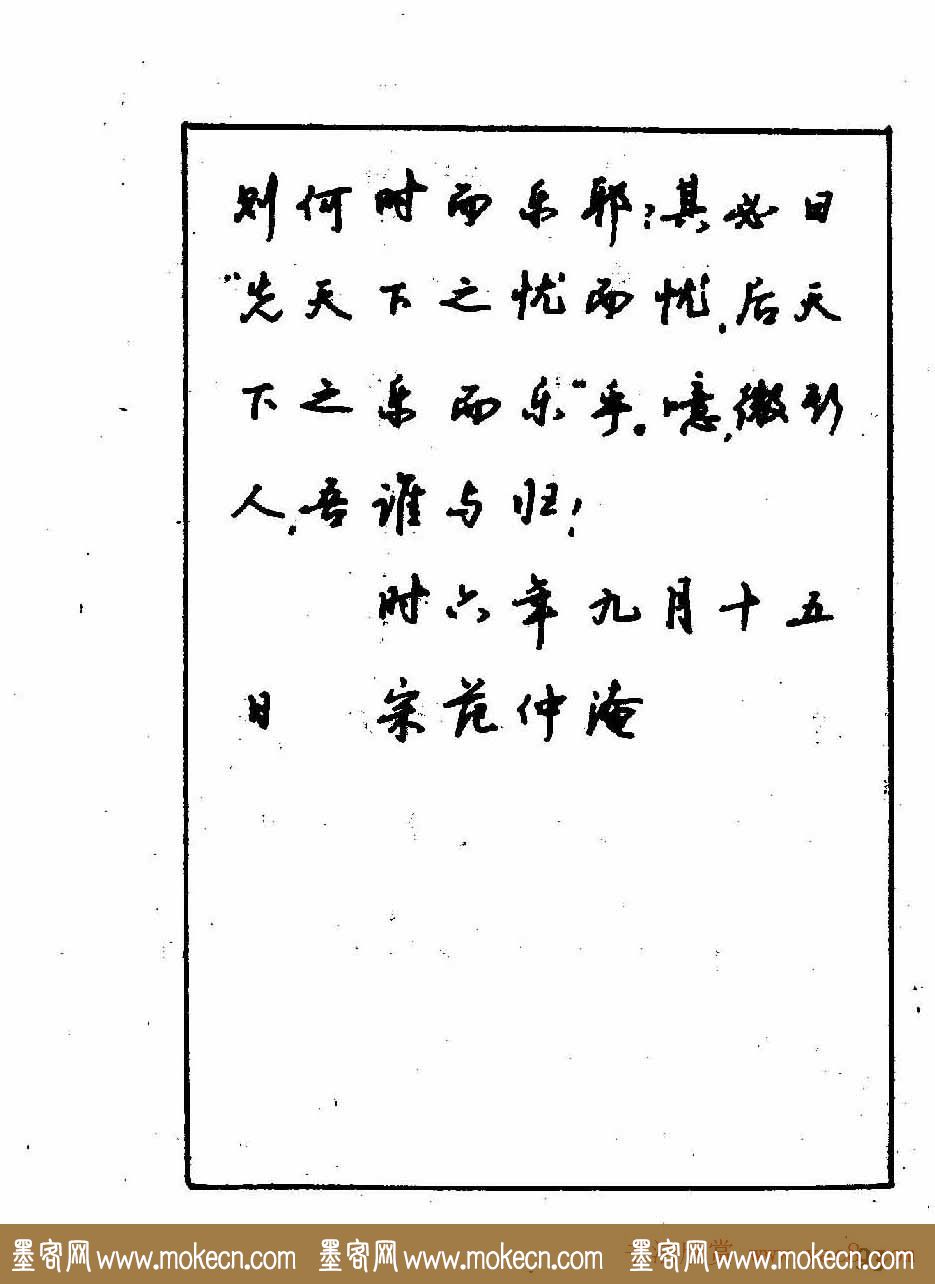 则何时而乐耶？其必曰
“先天下之忧而忧，后天
下之乐而乐”乎。噫，微斯
人，吾谁与归！
时六年九月十五
日 宋范仲淹
墨客网 www.mokecn.com 墨客网 www.mokecn.com 墨客网 www.mokecn.com